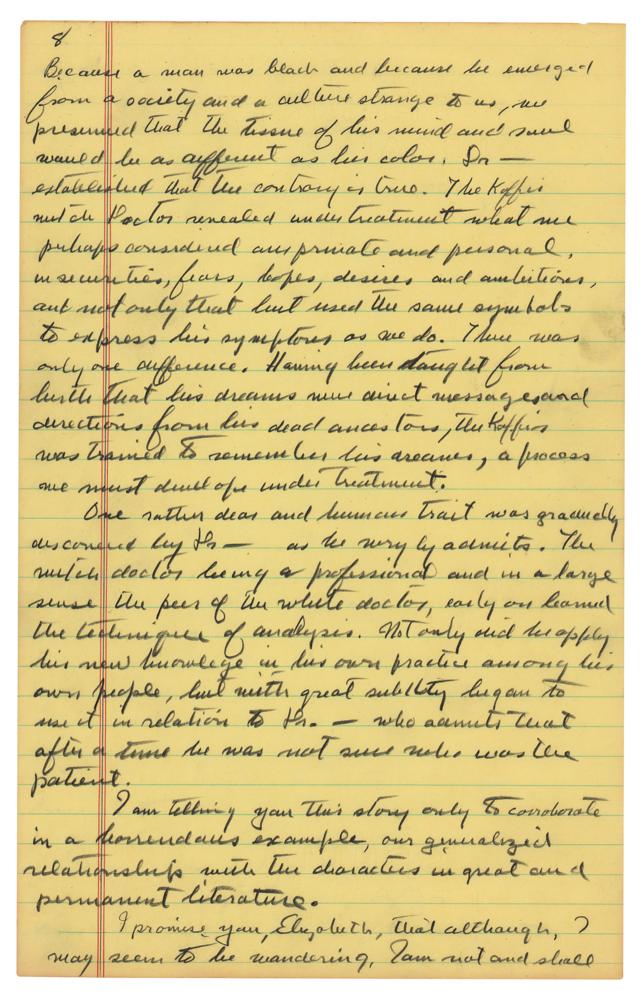 8
Because a man was black and because he emerged
from a society and a culture strange to us, we
presumed that the tissue of his mind and soul
would be as different as his color. Dr —
established that the contrary is true. The Kaffir
witch doctor revealed under treatment what we
perhaps considered our private and personal,
insecurities, fears, hopes, desires and ambitions,
and not only that but used the same symbols
to express his symptoms as we do. There was
only one difference. Having been taught from
birth that his dreams were direct messages and
directions from his dead ancestors, the Kaffir
was trained to remember his dreams, a process
we must develope under treatment.
One rather dear and human trait was gradually
discovered by Dr — as he wryly admits. The
witch doctor being a professional and in a large
sense the peer of the white doctor, early on learned
the technique of analysis. Not only did he apply
his new knowlege in his own practice among his
own people, but with great subtlty began to
use it in relation to Dr. — who admits that
after a time he was not sure who was the
patient.
I am telling you this story only to coroborate
in a horrendous example, our generalized
relationships with the characters in great and
permanent literature.
I promise you, Elizabeth, that although, I
may seem to be wandering, I am not and shall